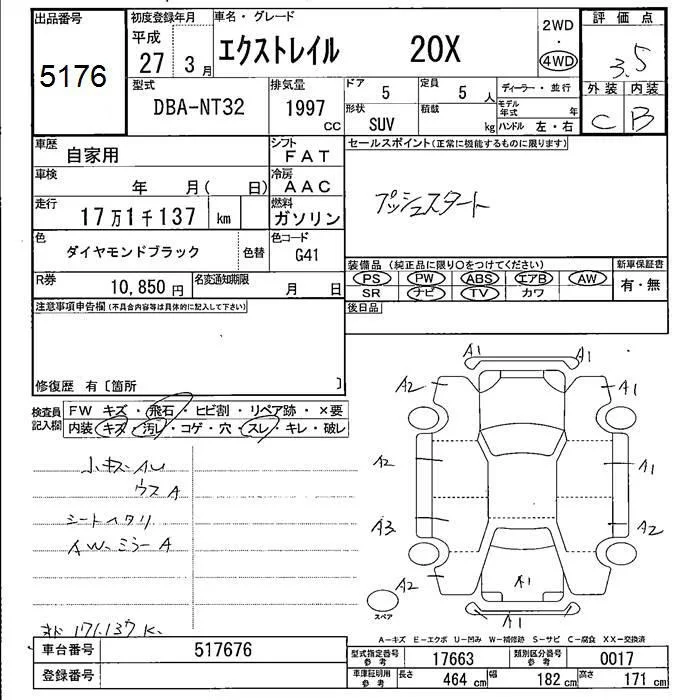 出品番号
5176
初度登録年月
平成
27 3月
車名・グレード
エクストレイル 20X
2WD
・
4WD
評価点
3.5
外装 内装
C B
型式
DBA-NT32
排気量
1997
CC
ドア
5
定員
5人
形状
SUV
積載
kg
ディーラー・並行
モデル年式 年
ハンドル 左・右
車歴
自家用
シフト
FAT
車検
年 月( 日)
冷房
AAC
走行
17万1千137 km
燃料
ガソリン
色
ダイヤモンドブラック
色替
色コード
G41
R券
10,850円
名変通知期限
月 日
セールスポイント(正常に機能するものに限ります)
プッシュスタート
装備品 (純正品に限り○をつけてください)
PS PW ABS エアB AW
SR ナビ TV カワ
新車保証書
有・無
後日品
注意事項申告欄(不具合内容等は具体的に記入して下さい)
修復歴 有〔箇所 〕
検査員
記入欄
FW キズ・飛石・ヒビ割・リペア跡・×要
内装・キズ・汚レ・コゲ・穴・スレ・キレ・破レ
小キズ・AU
ウスA
シートヘタリ
AW、ミラーA
171.137K
A1 A1
A2 A1
A2 A1
A3 A2
A2 A1
A1
スペア
A−キズ E−エクボ U−凹み W−補修跡 S−サビ C−腐食 XX−交換済
車台番号
517676
登録番号
型式指定番号
参考
17663
類別区分番号
参考
0017
車庫証明用
参考
長さ
464 cm
幅
182 cm
高さ
171 cm